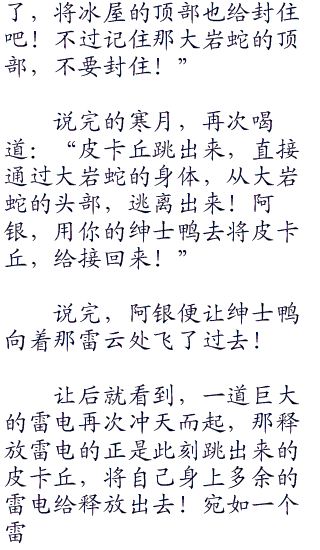 了，将冰屋的顶部也给封住
吧！不过记住那大岩蛇的顶
部，不要封住！”
说完的寒月，再次喝
道：“皮卡丘跳出来，直接
通过大岩蛇的身体，从大岩
蛇的头部，逃离出来！阿
银，用你的绅士鸭去将皮卡
丘，给接回来！”
说完，阿银便让绅士鸭
向着那雷云处飞了过去！
让后就看到，一道巨大
的雷电再次冲天而起，那释
放雷电的正是此刻跳出来的
皮卡丘，将自己身上多余的
雷电给释放出去！宛如一个
雷